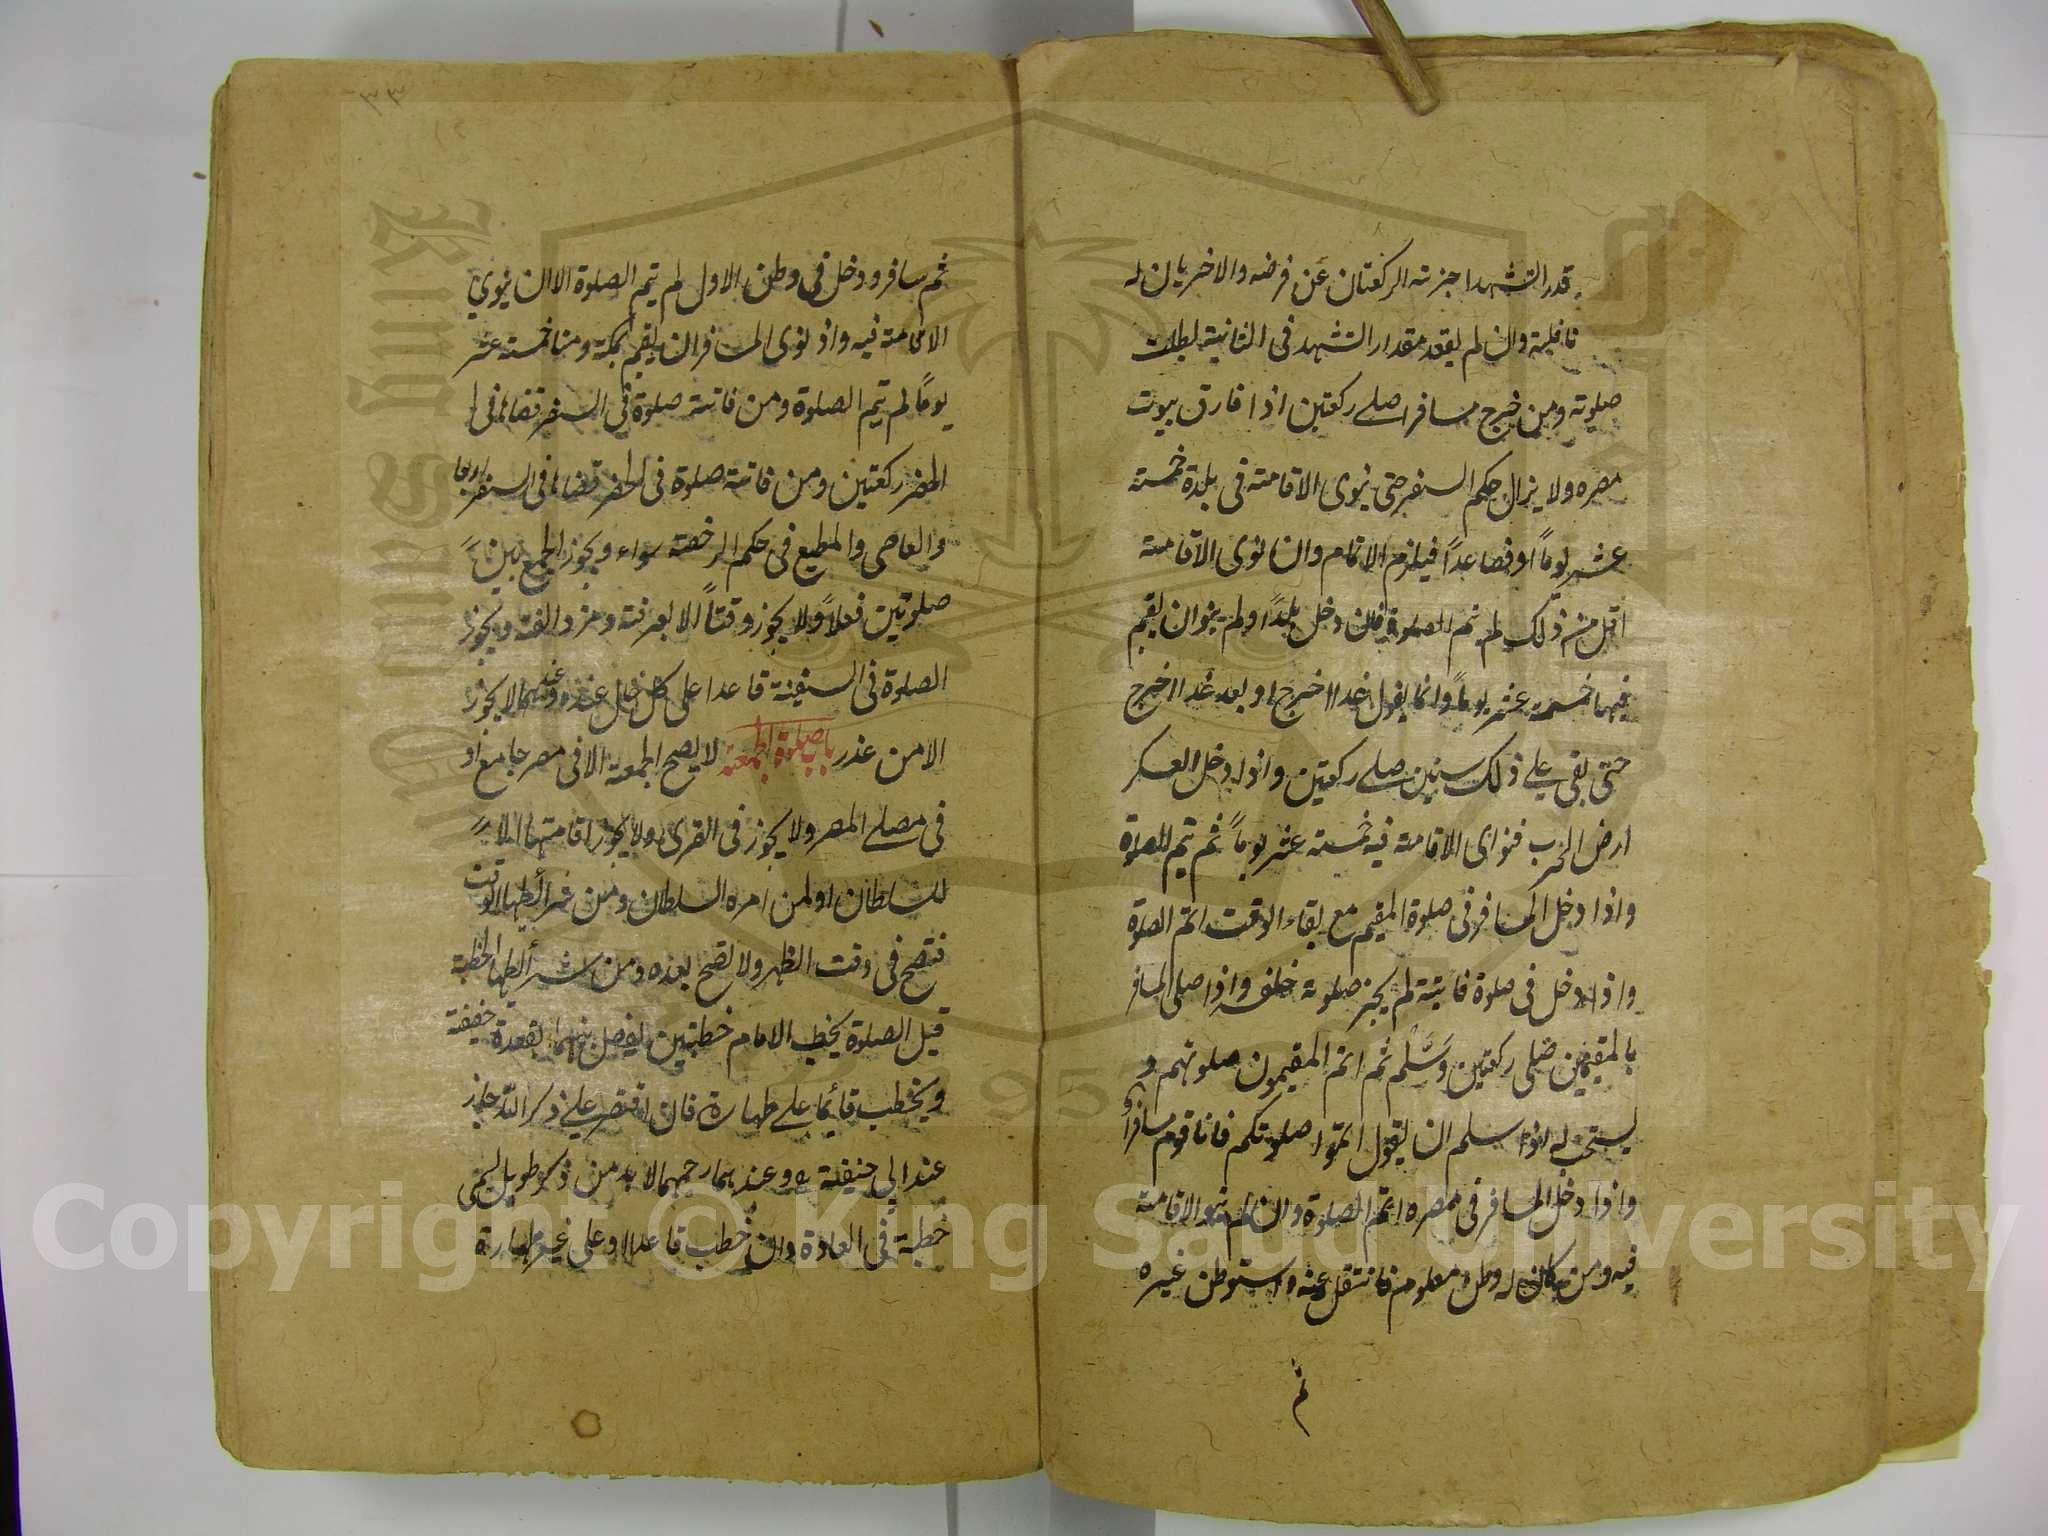 قدر التشهد اجزته الركعتان عن فرضه والاخريان له
نافلة وان لم يقعد مقدار التشهد فى الثانية بطلت
صلوته ومن خرج مسافرا صلے ركعتين اذا فارق بيوت
مصره ولا يزال حكم السفر حتى ينوى الاقامة فى بلدة خمسة
عشر يوماً او فصاعداً فيلزم الاتمام وان نوى الاقامة
اقل من ذلك لم يتم الصلوة فان دخل بلداً ولم ينو ان يقيم
فيها خمسة عشر يوماً وانما يقول غدا اخرج او بعد غد ااخرج
حتى بقى علے ذلك سنين صلے ركعتين واذا دخل العسكر
ارض الحرب فنوى الاقامة فيه خمسة عشر يوماً ثم يتم الصلوة
واذا دخل المسافر فى صلوة المقيم مع بقاء الوقت اتم الصلوة
واذا دخل فى صلوة فائتة لم يجز صلوته خلفه واذا صلى المسافر
بالمقيمين صلى ركعتين وسَلَّم ثم اتم المقيمون صلوتهم و
يستحب له اذا سلم ان يقول اتموا صلوتكم فانا قوم مسافر
واذا دخل المسافر فى مصره اتم الصلوة وان لم ينو الاقامة
فيه ومن كان له وطن معلوم فانتقل عنه واستوطن غيره
ثم
٣٣
ثم سافر ودخل فى وطن الاول لم يتم الصلوة الا ان ينوي
الاقامة فيه واذ نوى المسافر ان يقيم بمكة ومنا خمسة عشر
يوماً لم يتم الصلوة ومن فاتته صلوة فى السفر قضاها فى ا
الحضر ركعتين ومن فاتته صلوة فى الحضر قضاها فى السفر اربعا
والعاصى والمطيع فى حكم الرخصة سواء ويجوز الجمع بين
صلوتين فعلاً ولا يجوز وقتاً الا بعرفة ومزدالفة ويجوز
الصلوة فى السفينة قاعدا على كل حال عنده وعندهما لا يجوز
الا من عذر باب صلوة الجمعة لا يصح الجمعة الا فى مصر جامع او
فى مصلے المصر ولا يجوز فى القرى ولا يجوز اقامتها الا
للسلطان او لمن امره السلطان ومن شرائطها الوقت
فتصح فى وقت الظهر ولا تصح بعده ومن شرائطها الخطبة
قبل الصلوة يخطب الامام خطبتين يفصل بينهما بقعدة خفيفة
ويخطب قائما علے طهارة فان اقتصر علے ذكر الله جاز
عند ابي حنيفة وعندهما رحمهما لا بد من ذكر طويل يسمى
خطبة فى العادة وان خطب قاعدا او على غير طهارة
Copyright © King Saud University